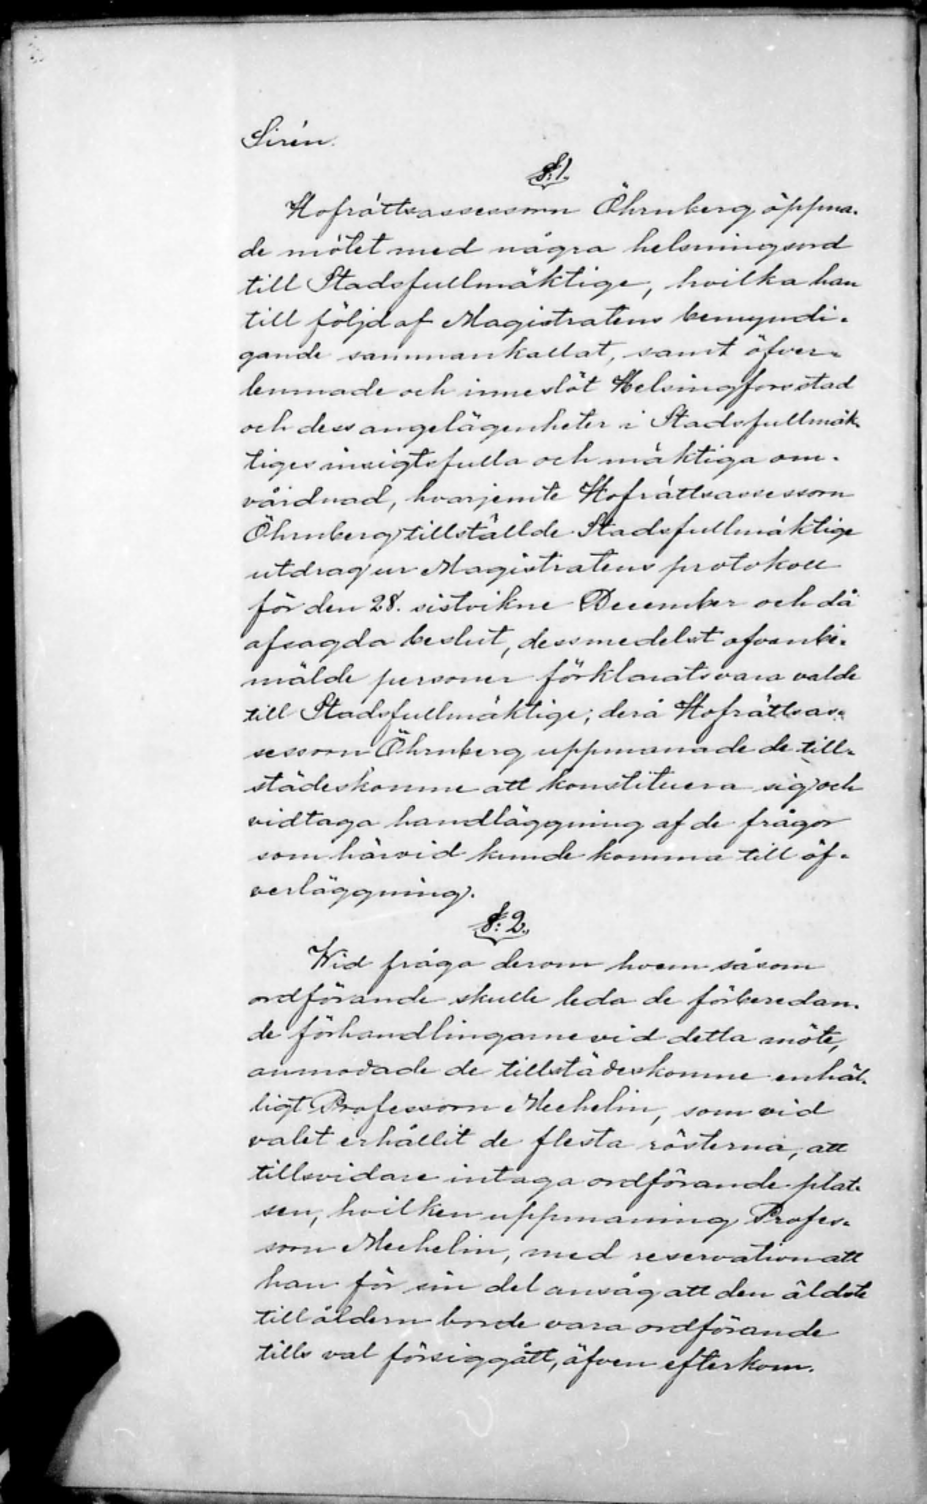 Sirén.
§:1.
Hofrättsassessorn Öhrnberg öppna-
de mötet med några helsningsord
till Stadsfullmäktige, hvilka han
till följd af Magistratens bemyndi-
gande sammankallat, samt öfver-
lemnade och inneslöt Helsingfors stad
och dess angelägenheter i Stadsfullmäk-
tiges insigtsfulla och mäktiga om-
vårdnad, hvarjemte Hofrättsassessorn
Öhrnberg tillställde Stadsfullmäktige
utdrag ur Magistratens protokoll
för den 28. sistvikne December och då
afsagda beslut, dessmedelst ofvanbe-
mälde personer förklarats vara valde
till Stadsfullmäktige; derå Hofrättsas-
sessorn Öhrnberg uppmanade de till-
städeskomne att konstituera sig och
vidtaga handläggning af de frågor
som härvid kunde komma till öf-
verläggning.
§:2.
Wid fråga derom hvem såsom
ordförande skulle leda de förberedan-
de förhandlingarne vid detta möte,
anmodade de tillstädeskomne enhäl-
ligt Professorn Mechelin, som vid
valet erhållit de flesta rösterna, att
tillsvidare intaga ordförande plat-
sen, hvilken uppmaning Profes-
sorn Mechelin, med reservation att
han för sin del ansåg att den äldste
till åldern borde vara ordförande
tills val försiggått, äfven efterkom.